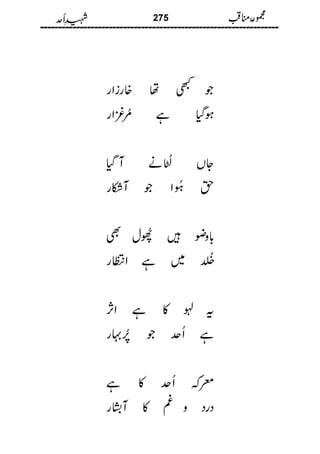 مجموعۂ مناقب 275 شہیدِ اُحد
جو کبھی تھا خارزار
ہوگیا ہے مُرغزار
جاں لُٹانے آ گیا
حق ہُوا جو آشکار
باوضو ہیں پھُول بھی
خُلد میں ہے انتظار
یہ لہو کا ہے اثر
ہے اُحد جو پُربہار
معرکہ اُحد کا ہے
درد و غم کا آبشار